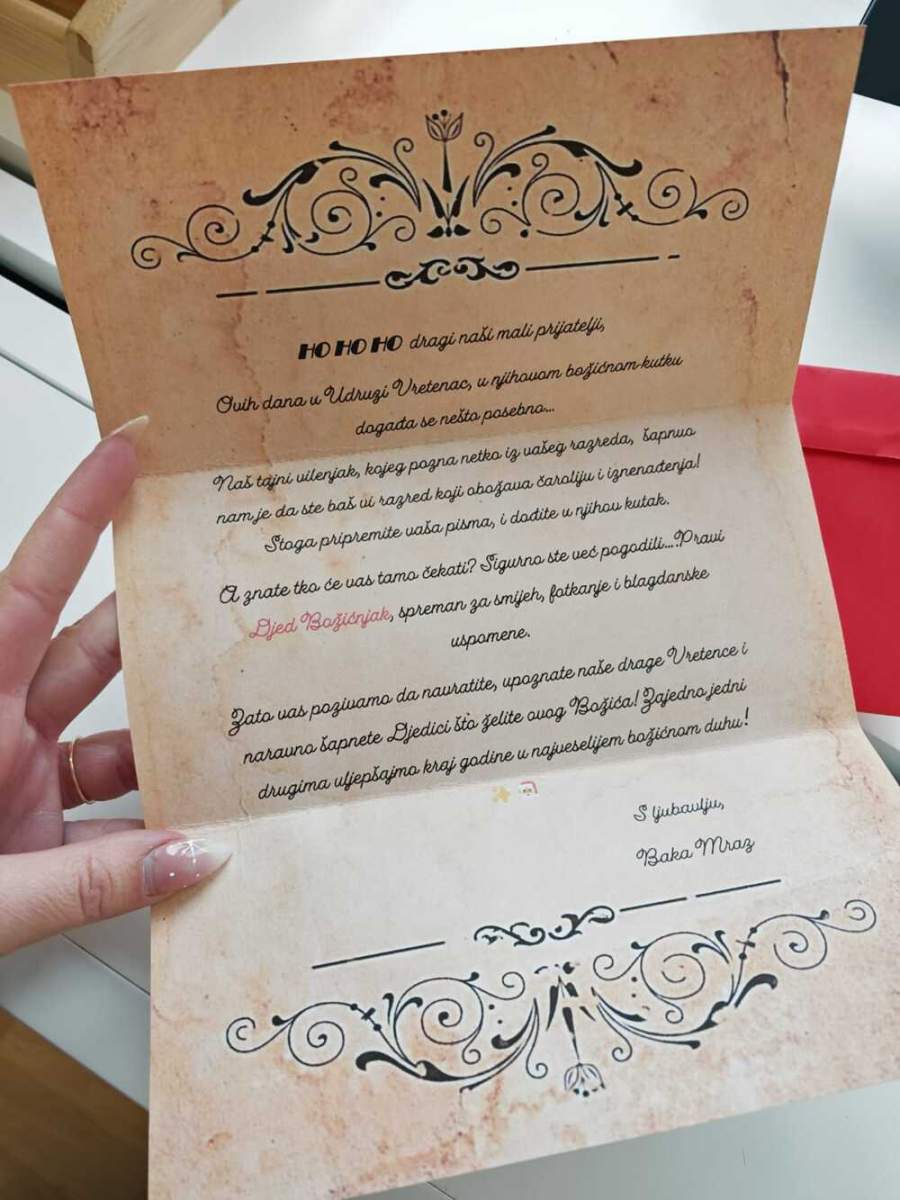 HO HO HO dragi naši mali prijatelji,
Ovih dana u Udruzi Vretenac, u njihovom božićnom kutku
događa se nešto posebno...
Naš tajni vilenjak, kojeg pozna netko iz vašeg razreda, šapnuo
nam je da ste baš vi razred koji obožava čaroliju i iznenađenja!
Stoga pripremite vaša pisma, i dođite u njihov kutak.
A znate tko će vas tamo čekati? Sigurno ste već pogodili...?Pravi
Djed Božićnjak, spreman za smijeh, fotkanje i blagdanske
uspomene.
Zato vas pozivamo da navratite, upoznate naše drage Vretence i
naravno šapnete Djedici što želite ovog Božića! Zajedno jedni
drugima uljepšajmo kraj godine u najveselijem božićnom duhu!
S ljubavlju,
Baka Mraz